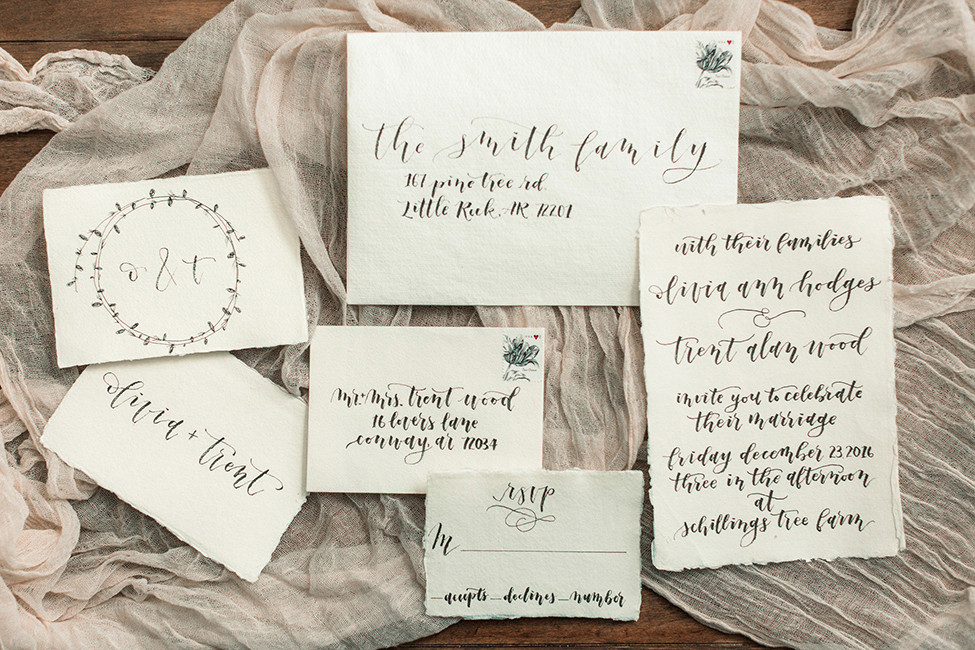 the smith family
167 pine tree rd.
Little Rock, AR 72201
o & t
olivia + trent
mr. + mrs. trent wood
16 lovers lane
conway, ar 72034
rsvp
M
accepts declines number
with their families
olivia ann hodges
&
trent alan wood
invite you to celebrate
their marriage
friday december 23 2016
three in the afternoon
at
schillings tree farm